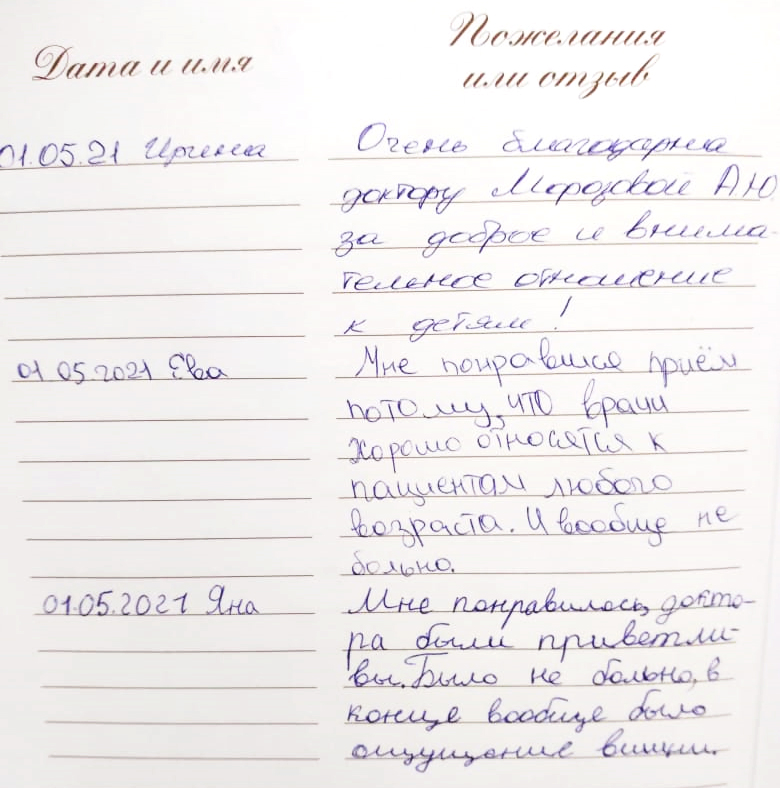 Дата и имя
Пожелания
или отзыв
01.05.21 Ирина
Очень благодарна
доктору Морозовой А.Ю
за доброе и внима-
тельное отношение
к детям!
01.05.2021 Ева
Мне понравился приём
потому, что врачи
хорошо относятся к
пациентам любого
возраста. И вообще не
больно.
01.05.2021 Яна
Мне понравилось, докто-
ра были приветли-
вы. Было не больно, в
конце вообще было
ощущение вишни.